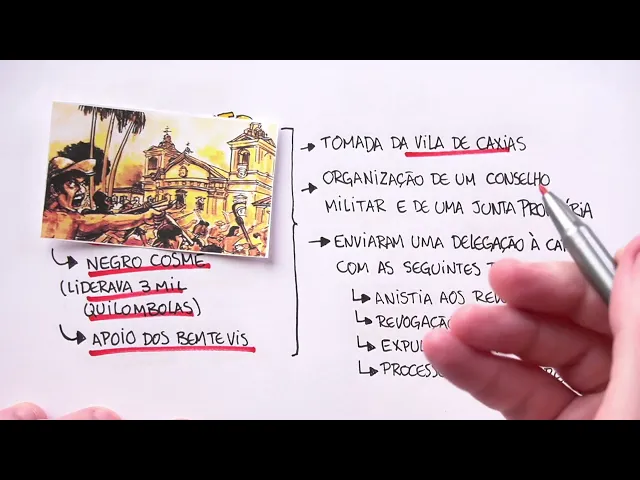 NEGRO COSME
(LIDERAVA 3 MIL
QUILOMBOLAS)
APOIO DOS BEMTEVIS
TOMADA DA VILA DE CAXIAS
ORGANIZAÇÃO DE UM CONSELHO
MILITAR E DE UMA JUNTA
ENVIARAM UMA DELEGAÇÃO À
COM AS SEGUINTES
ANISTIA AOS
REVOGAÇÃO